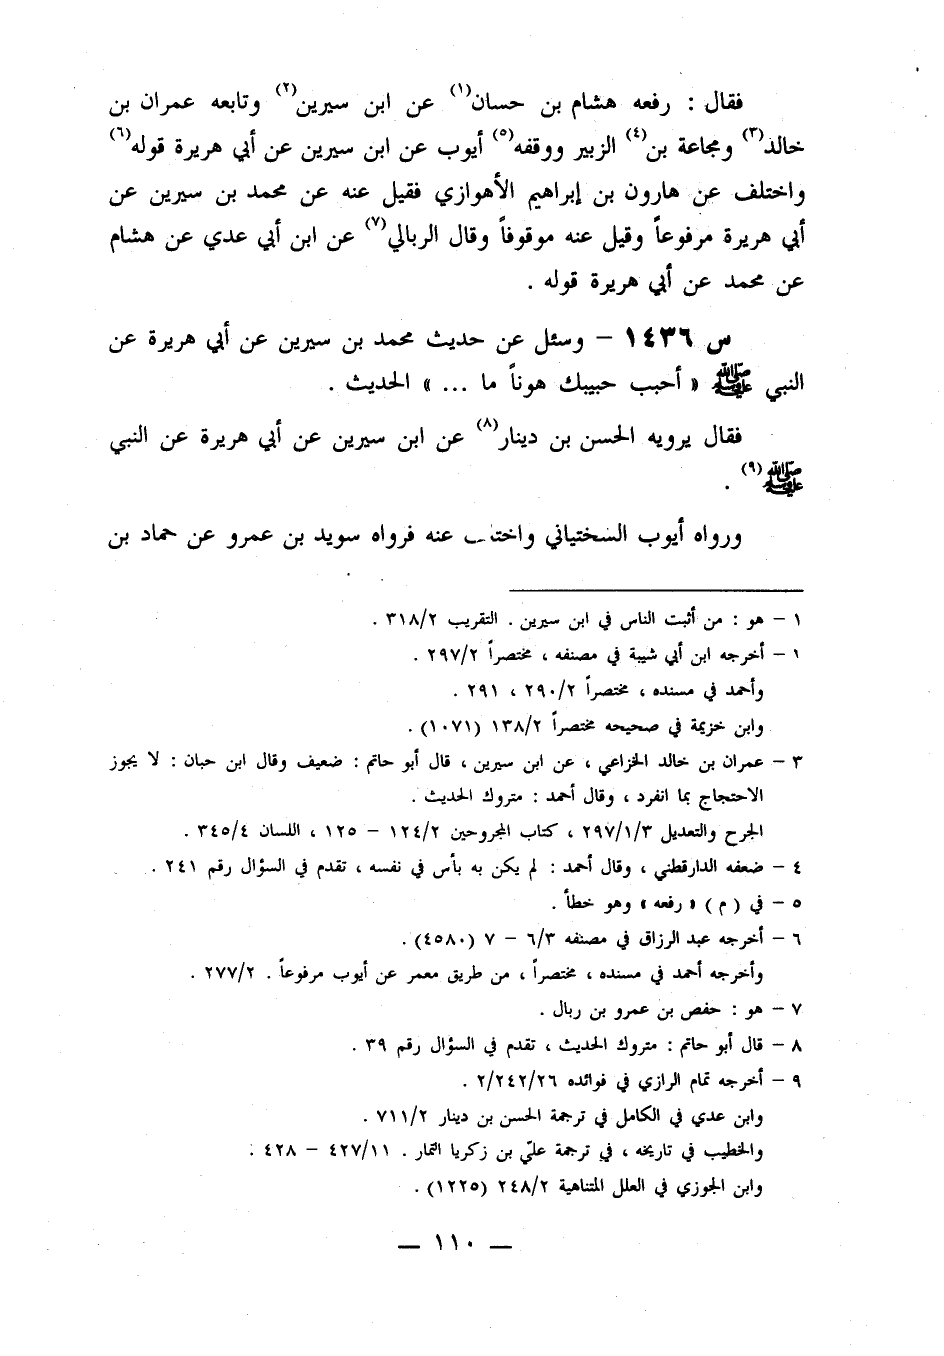 فقال : رفعه هشام بن حسان(١) عن ابن سيرين(٢) وتابعه عمران بن
خالد(٣) ومجاعة بن(٤) الزبير ووقفه(٥) أيوب عن ابن سيرين عن أبي هريرة قوله(٦)
واختلف عن هارون بن إبراهيم الأهوازي فقيل عنه عن محمد بن سيرين عن
أبي هريرة مرفوعاً وقيل عنه موقوفاً وقال الربالي(٧) عن ابن أبي عدي عن هشام
عن محمد عن أبي هريرة قوله .
س ١٤٣٦ – وسئل عن حديث محمد بن سيرين عن أبي هريرة عن
النبي ﷺ « أحبب حبيبك هوناً ما ... » الحديث .
فقال يرويه الحسن بن دينار(٨) عن ابن سيرين عن أبي هريرة عن النبي
ﷺ(٩) .
ورواه أيوب السختياني واختلف عنه فرواه سويد بن عمرو عن حماد بن
١ – هو : من أثبت الناس في ابن سيرين . التقريب ٣١٨/٢ .
١ – أخرجه ابن أبي شيبة في مصنفه ، مختصراً ٢٩٧/٢ .
وأحمد في مسنده ، مختصراً ٢٩٠/٢ ، ٢٩١ .
وابن خزيمة في صحيحه مختصراً ١٣٨/٢ (١٠٧١) .
٣ – عمران بن خالد الخزاعي ، عن ابن سيرين ، قال أبو حاتم : ضعيف وقال ابن حبان : لا يجوز
الاحتجاج بما انفرد ، وقال أحمد : متروك الحديث .
الجرح والتعديل ٢٩٧/١/٣ ، كتاب المجروحين ١٢٤/٢ – ١٢٥ ، اللسان ٣٤٥/٤ .
٤ – ضعفه الدارقطني ، وقال أحمد : لم يكن به بأس في نفسه ، تقدم في السؤال رقم ٢٤١ .
٥ – في ( م ) « رفعه » وهو خطأ .
٦ – أخرجه عبد الرزاق في مصنفه ٦/٣ – ٧ (٤٥٨٠) .
وأخرجه أحمد في مسنده ، مختصراً ، من طريق معمر عن أيوب مرفوعاً . ٢٧٧/٢ .
٧ – هو : حفص بن عمرو بن ربال .
٨ – قال أبو حاتم : متروك الحديث ، تقدم في السؤال رقم ٣٩ .
٩ – أخرجه تمام الرازي في فوائده ٢/٢٤٢/٢٦ .
وابن عدي في الكامل في ترجمة الحسن بن دينار ٧١١/٢ .
والخطيب في تاريخه ، في ترجمة عليّ بن زكريا التمار . ٤٢٧/١١ – ٤٢٨ .
وابن الجوزي في العلل المتناهية ٢٤٨/٢ (١٢٢٥) .
— ١١٠ —